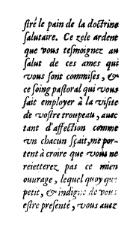 ſtré le pain de la doctrine
ſalutaire. Ce zele ardent
que vous teſmoignez au
ſalut de ces ames qui
vous ſont commiſes, &
ce ſoing paſtoral qui vous
fait employer à la viſite
de voſtre troupeau, auec
tant d'affection comme
vn chacun ſçait, me por-
tent à croire que vous ne
reietterez pas ce mien
ouurage, lequel quoy que
petit, & indigne de vous
eſtre preſenté, vous auez